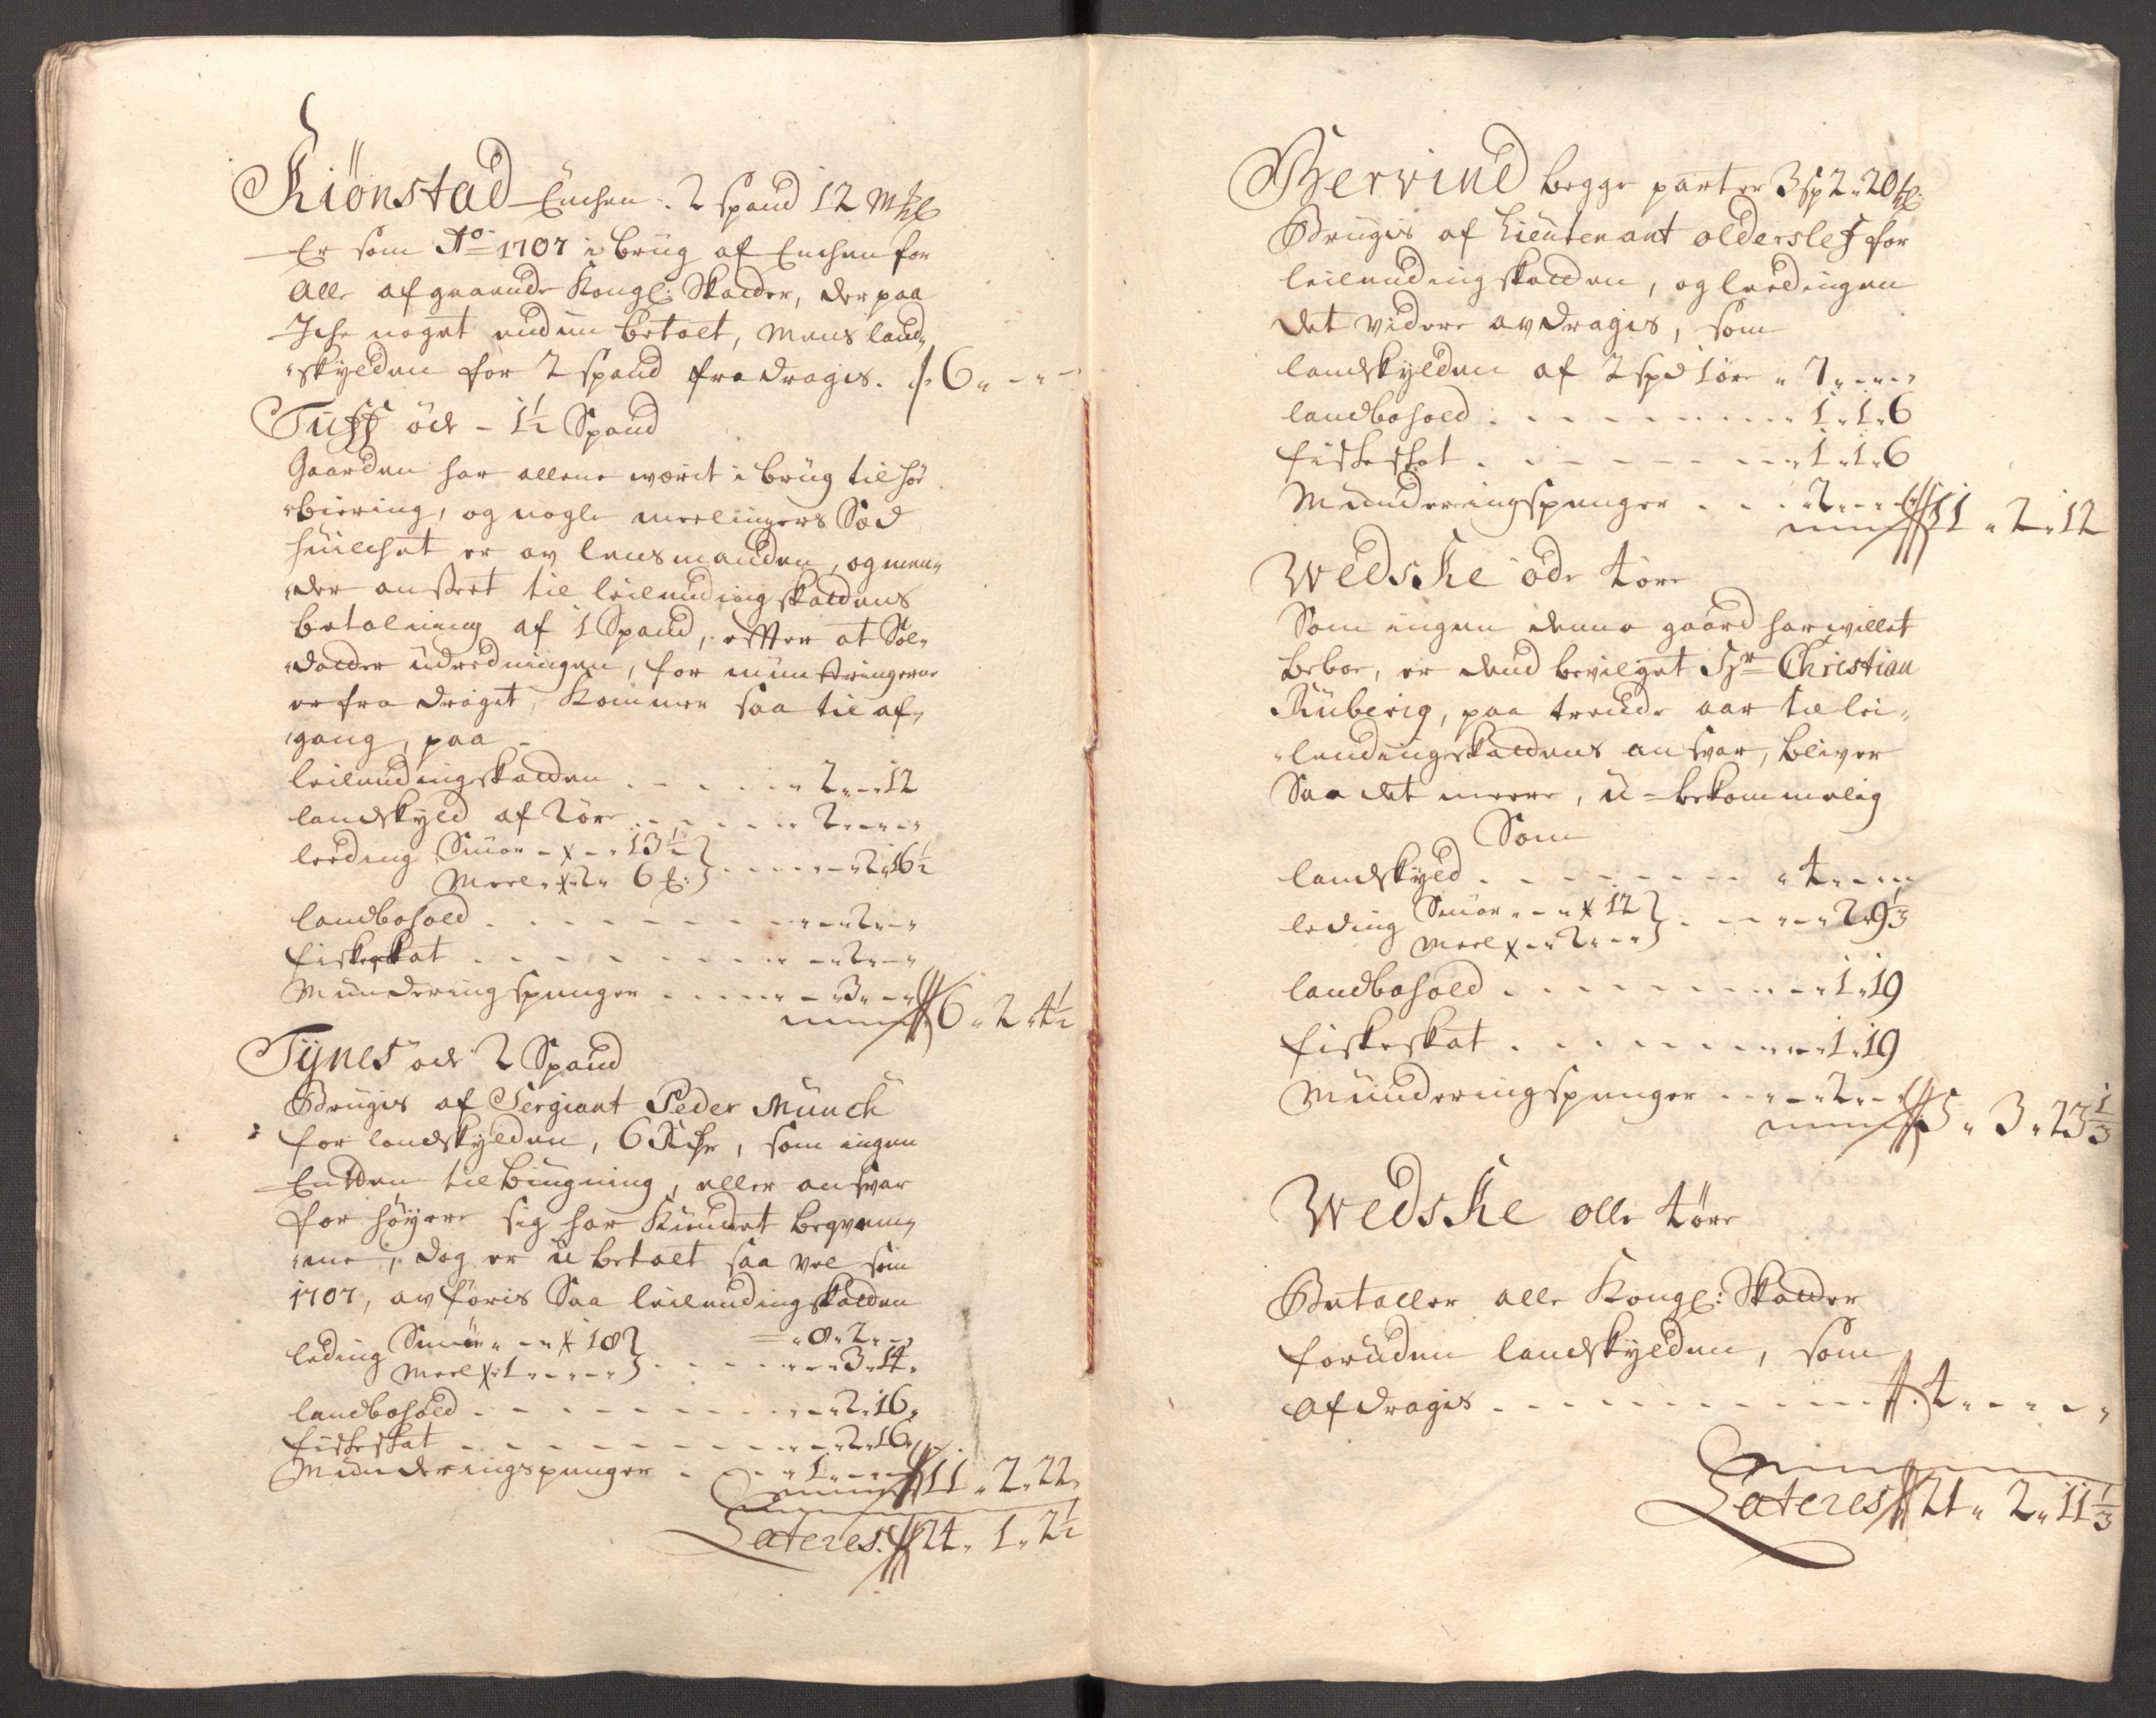 Kiønstad Enchen. 2 spand 12 Mkl
Er som Ao 1707 i brug af Enchen for
Alle afgaaende Kongl: Skatder, der paa
Iche noget endnu betalt, mens land„
„skylden for 2 spand fradragis. 6„ - „ -
Tuff øde - 1½ Spand
Gaarden har allene wærit i brug til høe
„biering, og nogle meelingers Sæd
huilchet er av lensmanden, og men„
„der ansæt til leilendingskatdens
betalning af 1 Spand, effter at Sol„
„dater udredningen, for mønstringerne
er fra draget, Kommer saa til af„
„gang, paa -
leilendingskatden . - . . . „ 2 „ - „ 12
landskyld af 2 øre . . . . . „ 2 „ - „ -
leeding Smør - „ - „ 13½
Meel „ - 2 „ 6 - - - „ - „ 2 „ 16½
landboehold . . . . . „ - „ 2 „ - „
fiskeskat . . . . . „ - „ 2 „ - „
Munderingspenger . . . . - „ 3 „ - „ 6 „ 2 „ 4½
Tÿnes øde 2 Spand
Brugis af Sergiant Peder Munch
for landskylden, 6 Rdr, som ingen
Entten til bøugning, eller ansvar
for høyere sig har Kundet beqvem„
„me, dog er u betalt saa vel som
1707, av føris Saa leilendingskatden
„ 8 „ 2 „ - „
leding Smør „ - „ 18
Meel „ 1 „ - „ - „ . . . „ - „ 3 „ 14 „
landbohold . . . . . „ - „ 2 „ 16 „
fiskeskat . . . . . „ - „ 2 „ 16 „
Munderingspenger . . . „ 1 „ - „ - 11 „ 2 „ 22 „
Lateres. 24 „ 1 „ 2½
Bervind begge parter 3 sp 2 „ 20
Brugis af Lieutenant olderslef for
leilendingskatden, og leedingen
det videre avdragis, som
landskylden af 2 spd 1 øre „ 7 „ - „ -
landbohold . . . . . „ 1 „ 1 „ 6
fiskeskat . . . . . „ 1 „ 1 „ 6
Munderingspenger . . . „ 2 „ - „ - 11 „ 2 „ 12
Wedske øde 4 øre
Som ingen denne gaard har willet
beboe, er dend bevilget Hr Christian
Ruberig, paa trende aar til lei„
„lendingskatdens ansvar, bliver
Saa det meere, u = bekommelig
Som
landskyld . . . . . „ 4 „ - „ -
leding Smør „ - „ 12
Meel „ - 2 „ - „ . - - „ - „ 2 „ 9⅓
landbohold . . . . . „ - „ 1 „ 19
fiskeskat . . . . . „ - „ 1 „ 19
Munderingspenger . . - „ - „ 2 „ - „ 5 „ 3 „ 23⅓
Wedske olle 4 øre
Betaller alle Kongl: Skatder
foruden landskylden, som
afdragis . . . . . 4 „ - „ - „
Lateres 21 „ 2 „ 11⅓